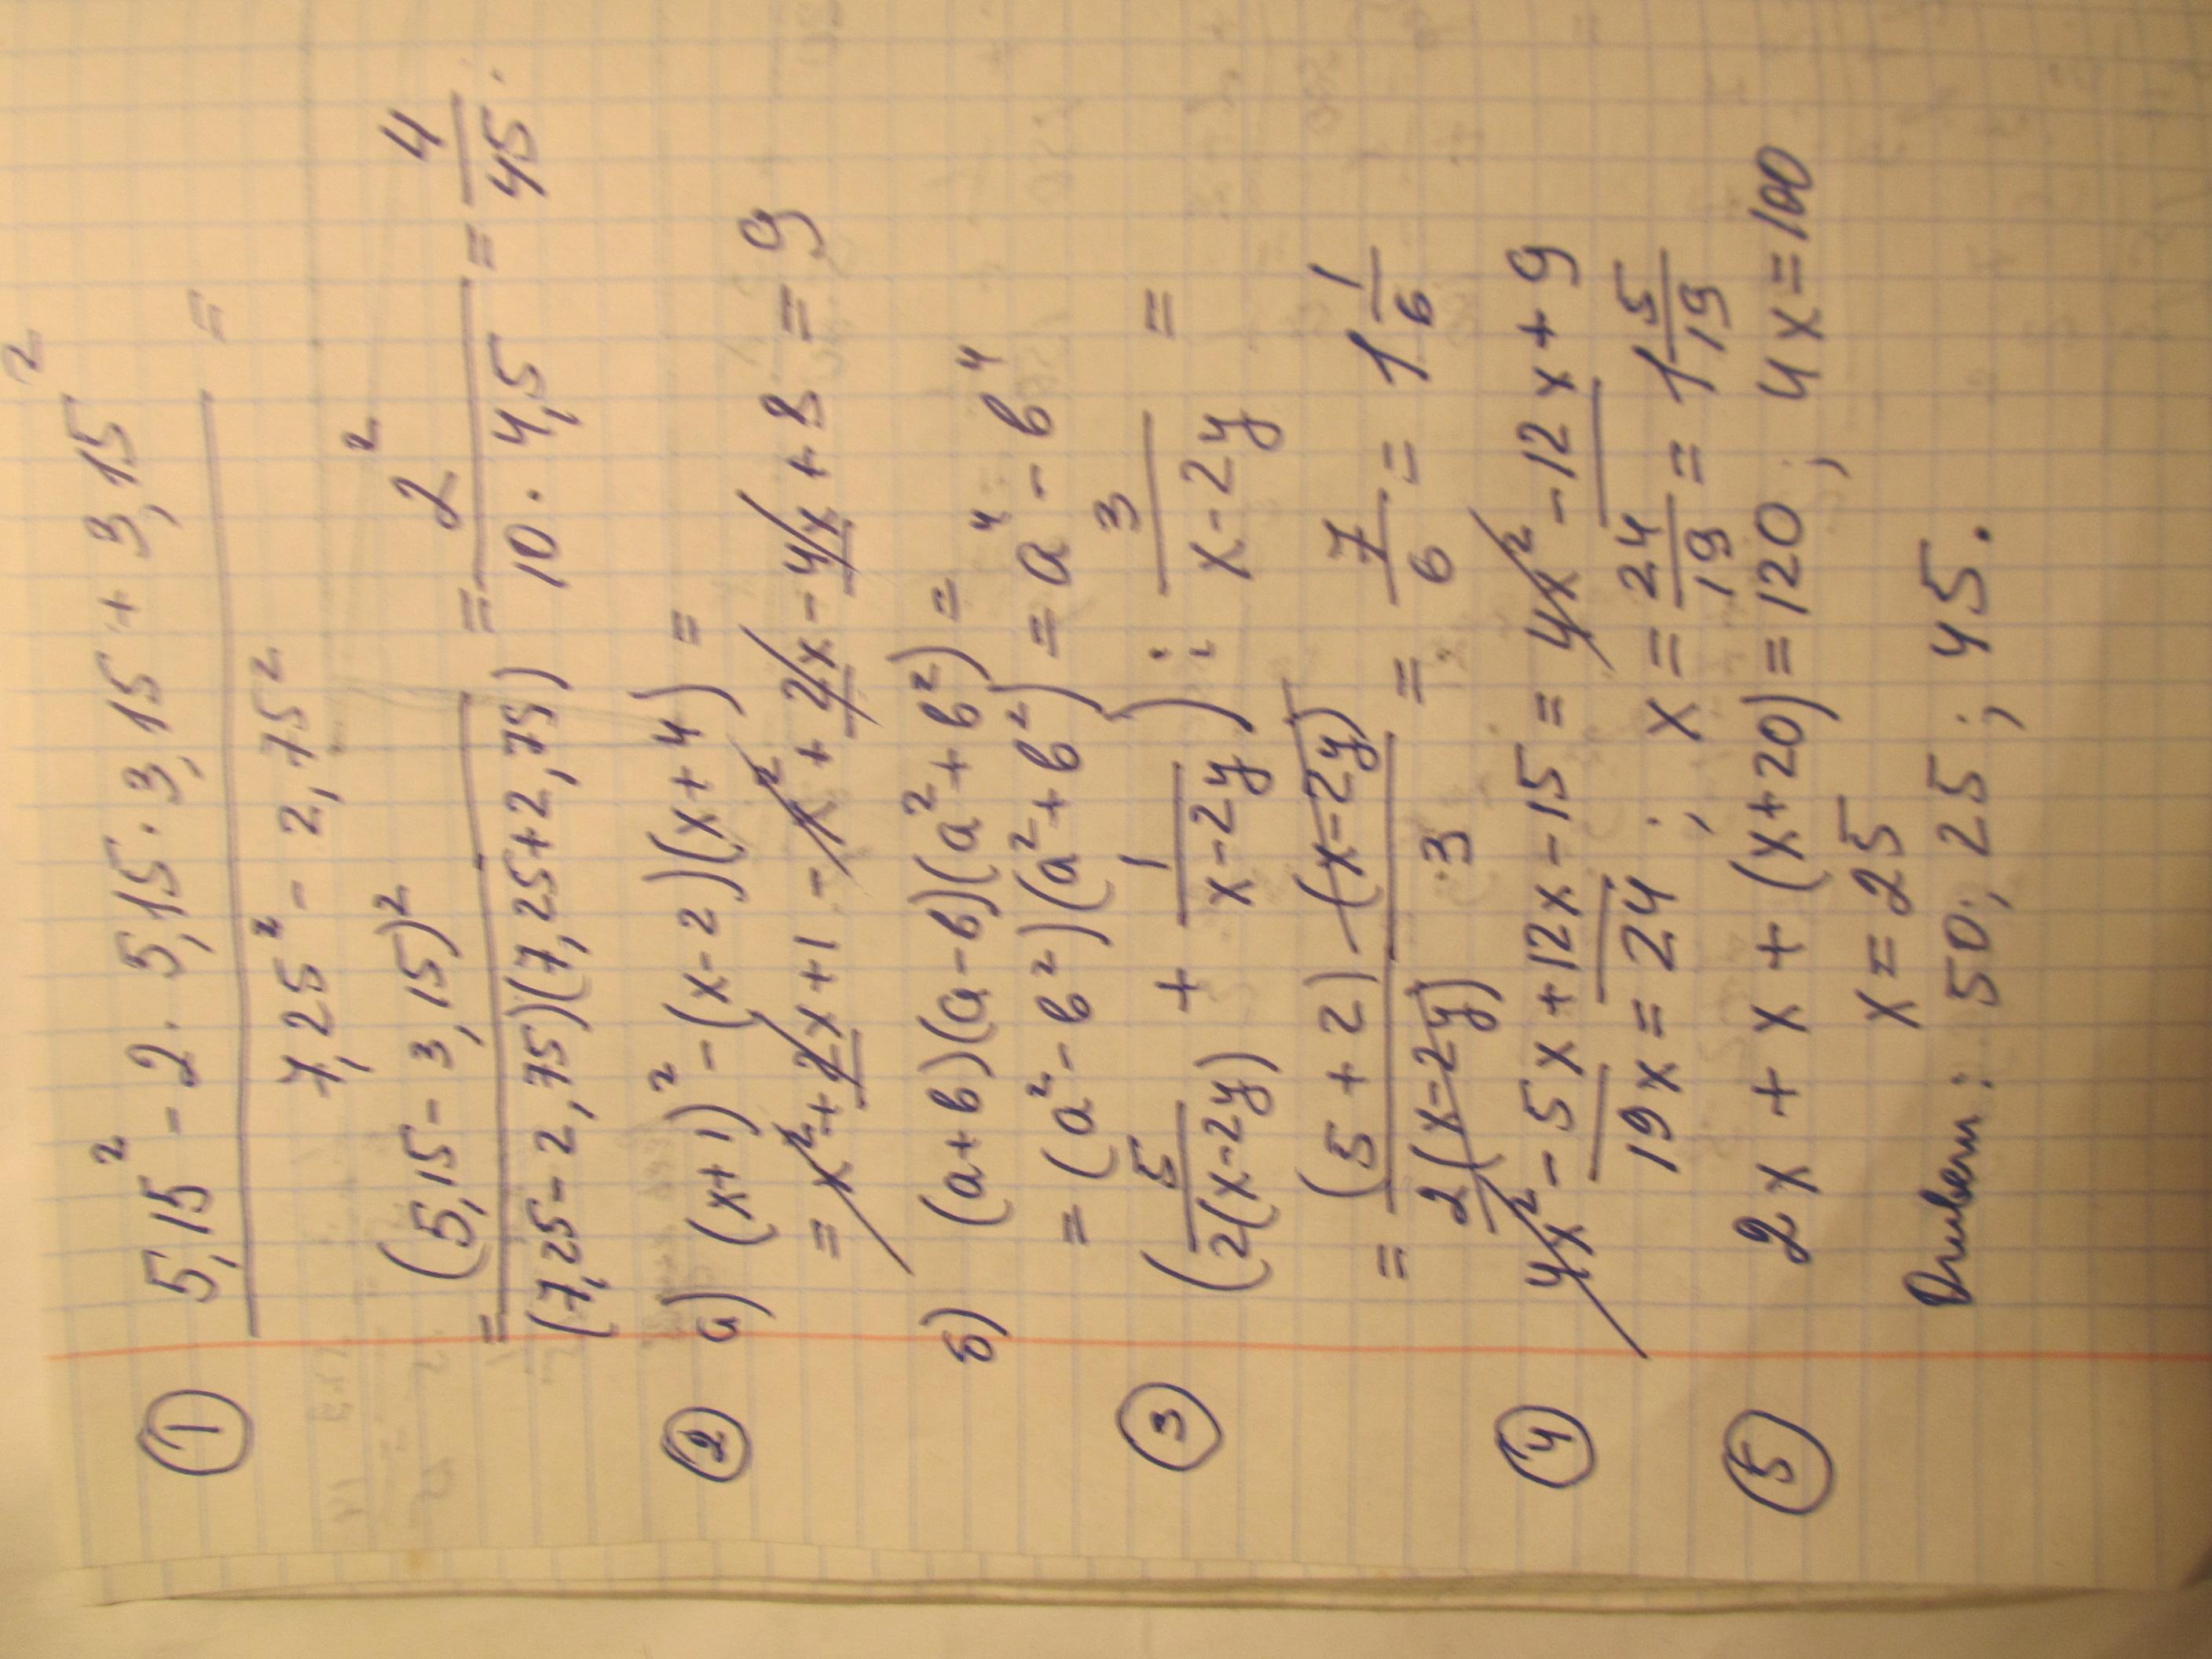 ① 5,15² - 2 · 5,15 · 3,15 + 3,15² ² =
7,25² - 2,75²
= (5,15 - 3,15)² / (7,25 - 2,75)(7,25 + 2,75) = 2² / 10 · 4,5 = 4/45.
② а) (x+1)² - (x-2)(x+4) =
= x² + 2x + 1 - x² + 2x - 4x + 8 = 9
б) (a+b)(a-b)(a²+b²) =
= (a² - b²)(a² + b²) = a⁴ - b⁴
③ (5/2(x-2y) + 1/x-2y) : 3/x-2y =
= (5+2) (x-2y) / 2(x-2y) · 3 = 7/6 = 1 1/6
④ 4x² - 5x + 12x - 15 = 4x² - 12x + 9
19x = 24 ; x = 24/19 = 1 5/19
⑤ 2x + x + (x+20) = 120 ; 4x = 100
x = 25
Ответ: 50; 25; 45.